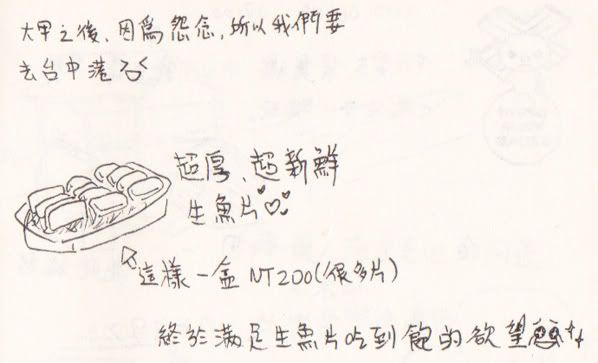 大甲之後、因為怨念,所以我們要
去台中港
超厚、超新鮮
生魚片♥♡
這樣一盒 NT200(很多片)
終於滿足生魚片吃到飽的欲望